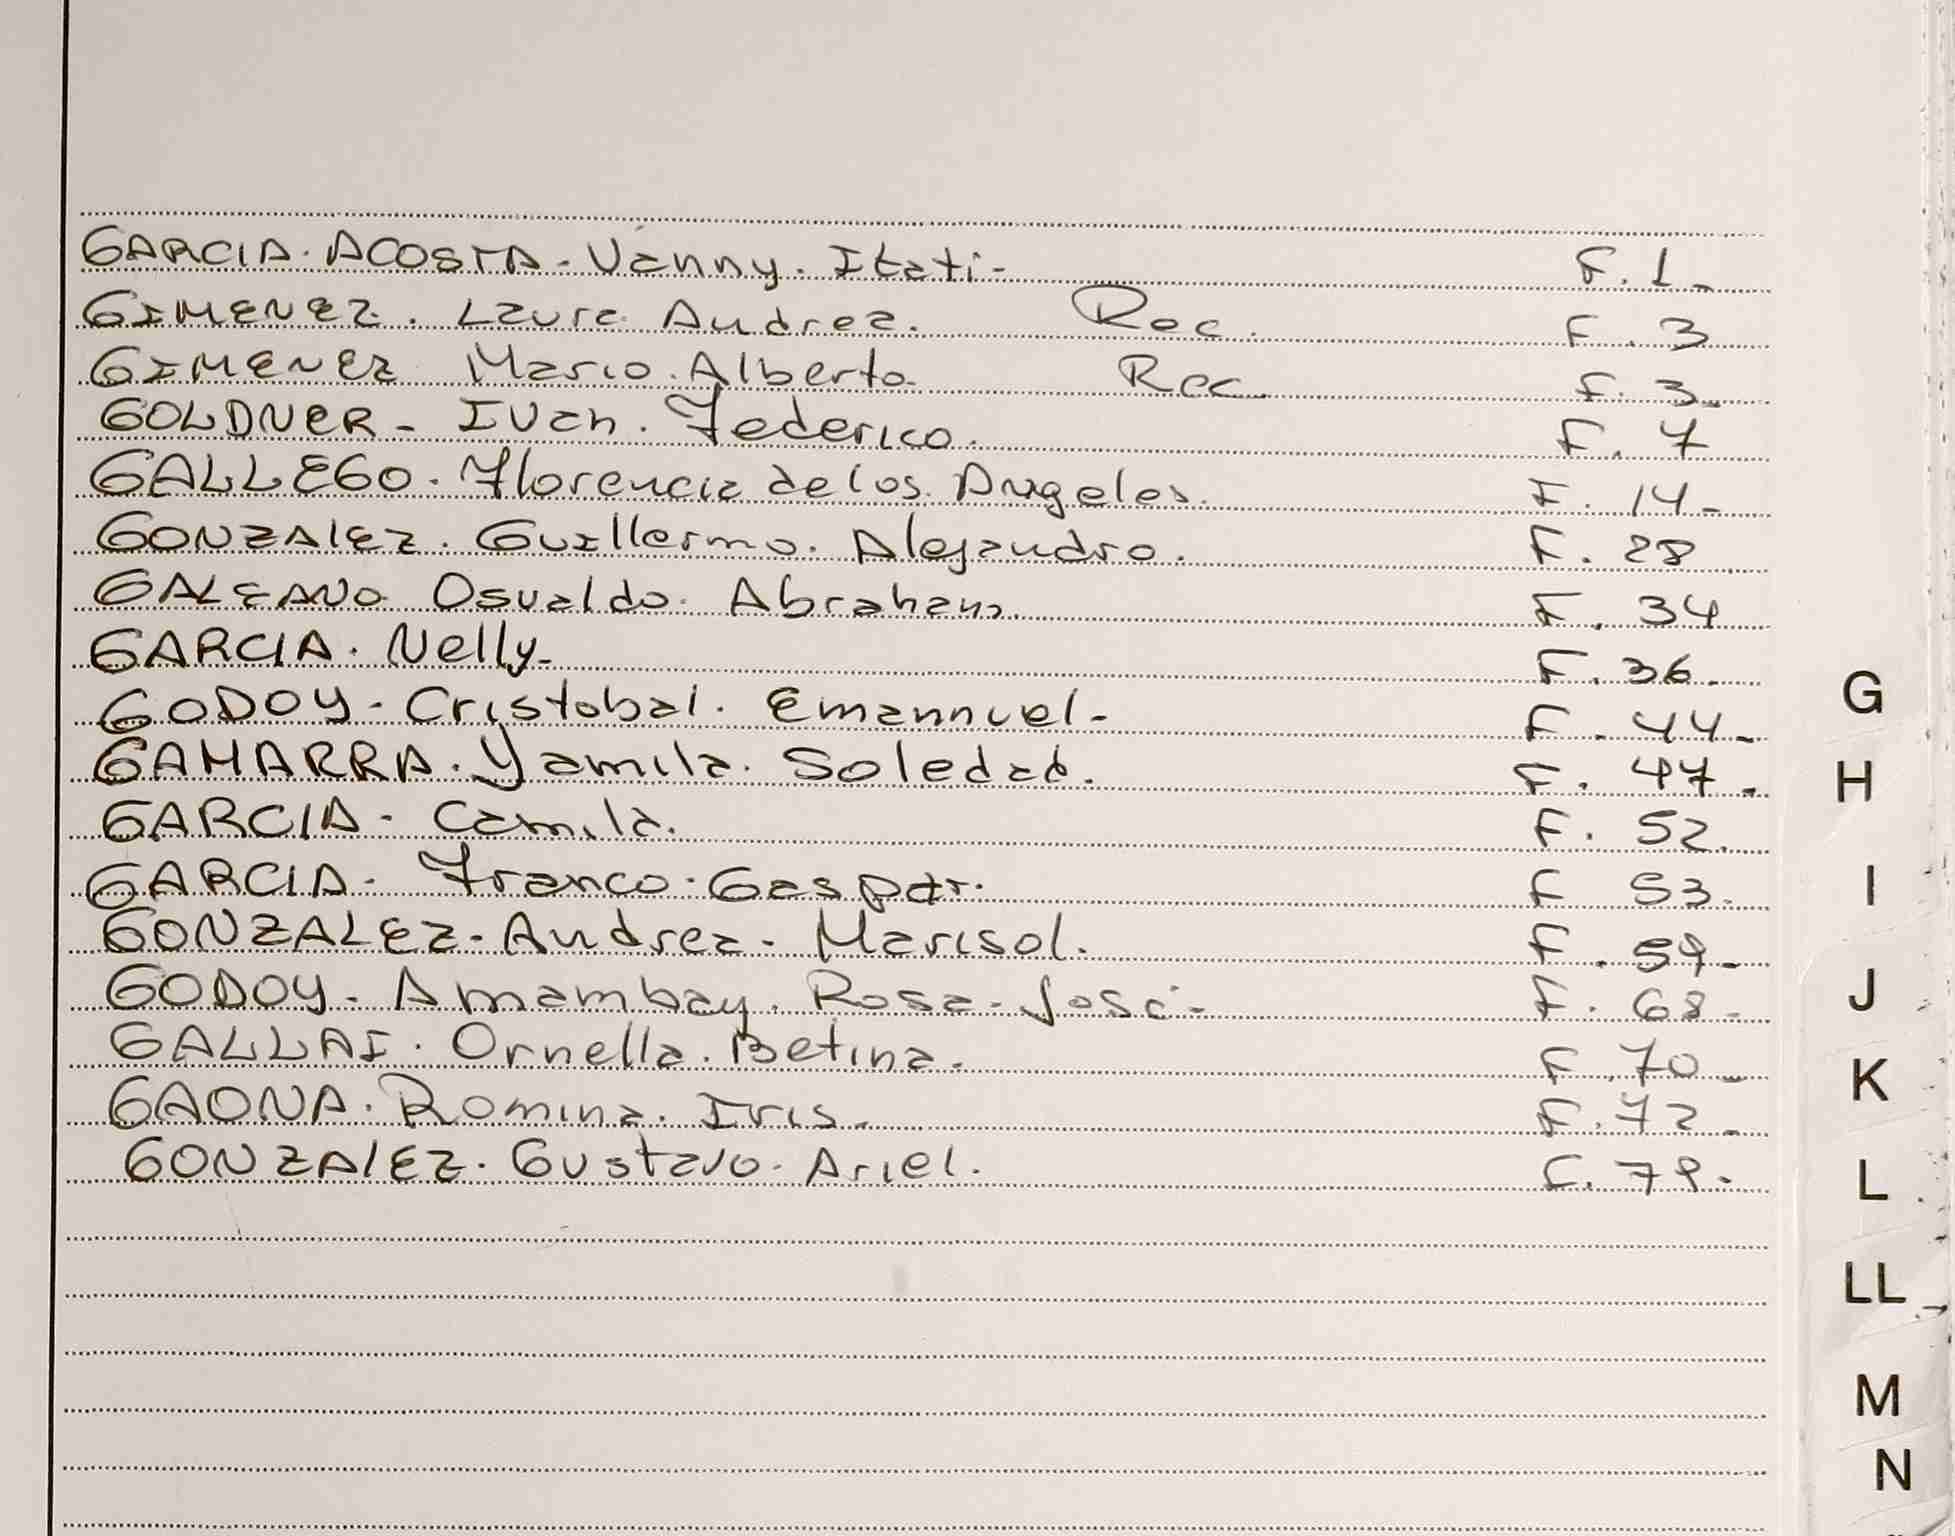 GARCIA. ACOSTA - Vanny. Itati - F. 1 -
GIMENEZ. Laura Andrea. Rec. F. 3
GIMENEZ Mario. Alberto. Rec. F. 3 -
GOLDNER - Ivan. Federico. F. 7
GALLEGO. Florencia de los Angeles. F. 14 -
GONZALEZ. Guillermo. Alejandro. F. 28
GALEANO Osvaldo. Abraham. F. 34
GARCIA. Nelly - F. 36 -
GODOY - Cristobal. Emannuel - F. 44 -
GAMARRA. Yamila. Soledad. F. 47 -
GARCIA - Camila. F. 52.
GARCIA - Franco. Gaspar. F 53.
GONZALEZ - Andrea - Marisol. F. 59 -
GODOY - Amambay. Rosa - José - F. 68 -
GALLAI. Ornella. Betina. F. 70 -
GAONA. Romina. Iris. F. 72 -
GONZALEZ. Gustavo. Ariel. F.
G
H
I
J
K
L
LL
M
N